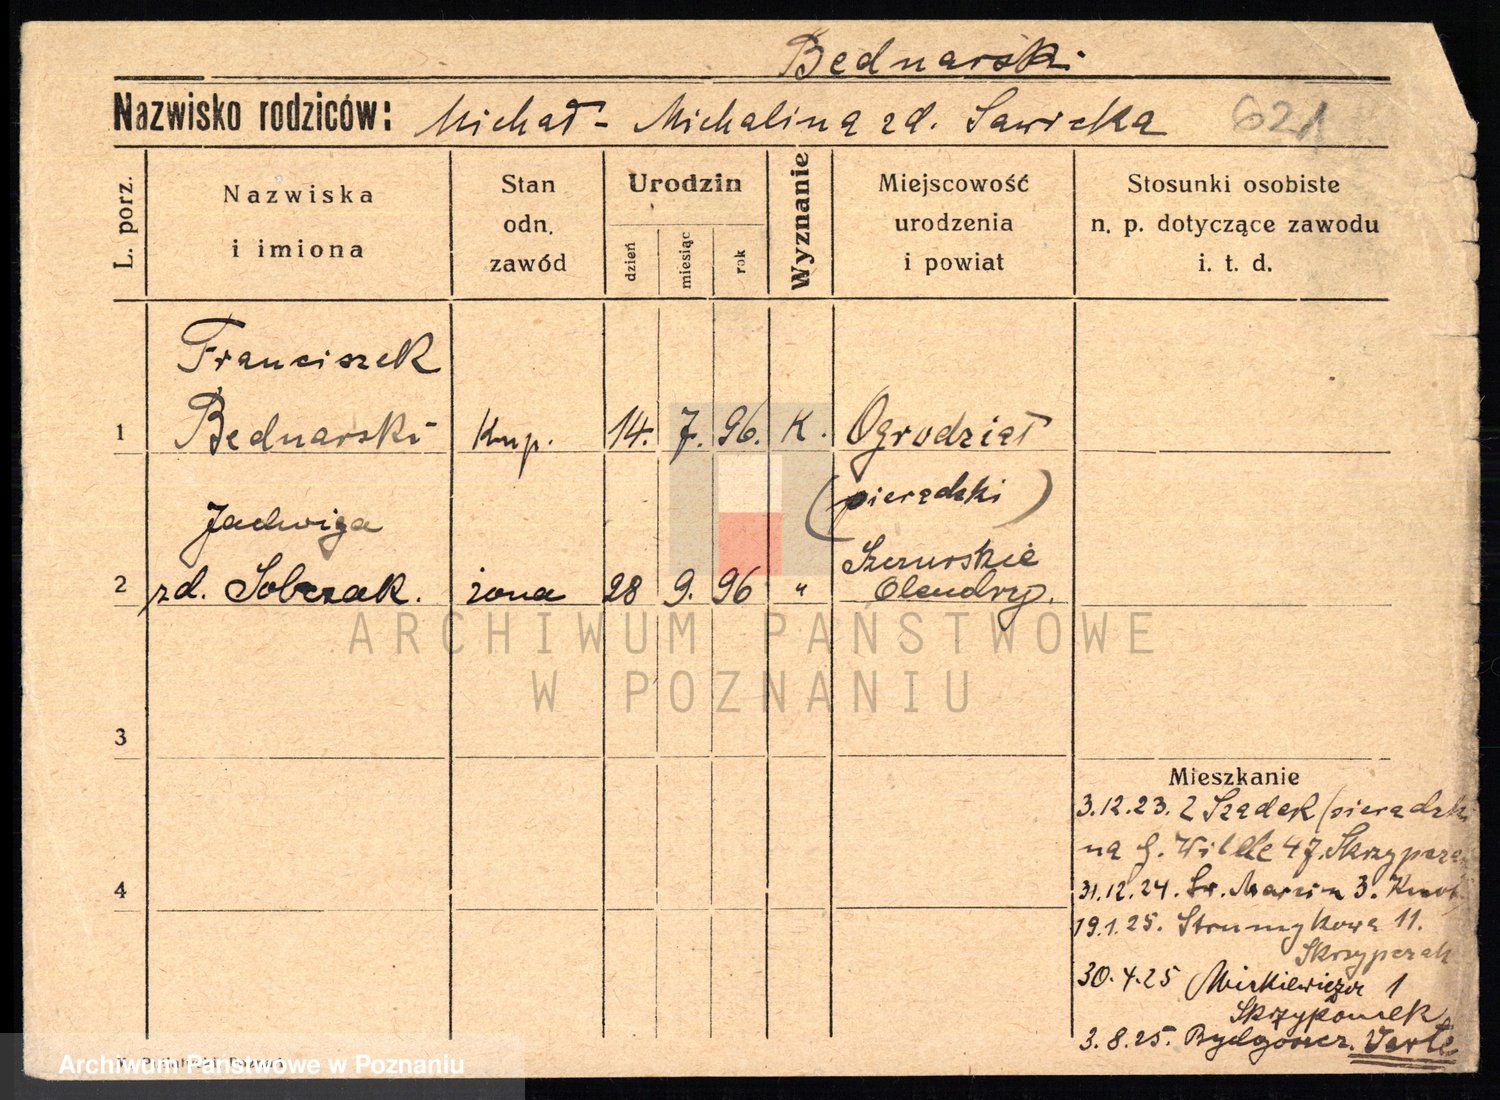 Bednarski
Nazwisko rodziców: Michał - Michalina zd. Sawicka 621
L. porz.
Nazwiska
i imiona
Stan
odn.
zawód
Urodzin
dzień
miesiąc
rok
Wyznanie
Miejscowość
urodzenia
i powiat
Stosunki osobiste
n. p. dotyczące zawodu
i. t. d.
Franciszek
1 Bednarski Kup. 14. 7. 96. K. Ogrodział
(pieradzki)
Jadwiga
2 zd. Sobczak. żona 28 9. 96 „ Szczurskie
Olendry.
ARCHIWUM PAŃSTWOWE
W POZNANIU
3
Mieszkanie
3.12.23. z Szadek (sieradzki
na G. Wilde 47. Skrzypcza
4
31.12.24. Św. Marcin 3.
19.1.25. Strumykowa 11.
Skrzypczak
30.4.25 Mickiewicza 1
3.8.25. Bydgoszcz. Verte
Archiwum Państwowe w Poznaniu